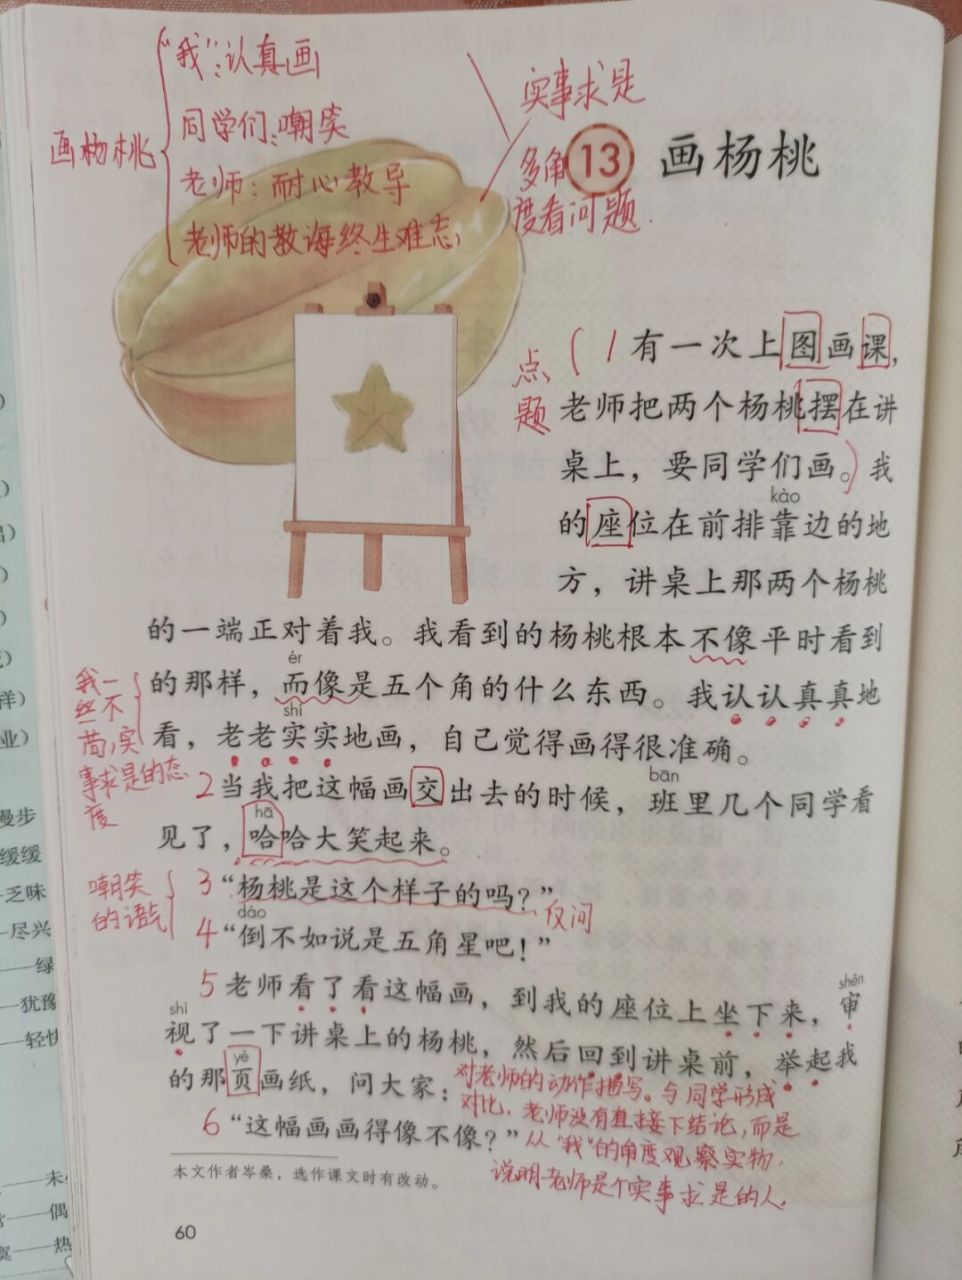 画杨桃
“我”：认真画
同学们：嘲笑
老师：耐心教导
老师的教诲终生难忘
实事求是
多角
度看问题.
13 画杨桃
点
题
(1有一次上图画课，
老师把两个杨桃摆在讲
桌上，要同学们画。)我
kào
的座位在前排靠边的地
方，讲桌上那两个杨桃
的一端正对着我。我看到的杨桃根本不像平时看到
ér
的那样，而像是五个角的什么东西。我认认真真地
shí
看，老老实实地画，自己觉得画得很准确。
我一
丝不
苟,实
事求是的态
度
bān
2当我把这幅画交出去的时候，班里几个同学看
hā
见了，哈哈大笑起来。
嘲笑
的语气
3“杨桃是这个样子的吗？”
反问
dào
4“倒不如说是五角星吧！”
5老师看了看这幅画，到我的座位上坐下来，审
shěn
shì
视了一下讲桌上的杨桃，然后回到讲桌前，举起我
yè
的那页画纸，问大家：
6“这幅画画得像不像？”
对老师的动作描写。与同学形成
对比.老师没有直接下结论,而是
从“我”的角度观察实物,
说明老师是个实事求是的人.
本文作者岑桑，选作课文时有改动。
60
漫步
缓缓
乏味
尽兴
——绿
——犹豫
——轻快
——偶
——热